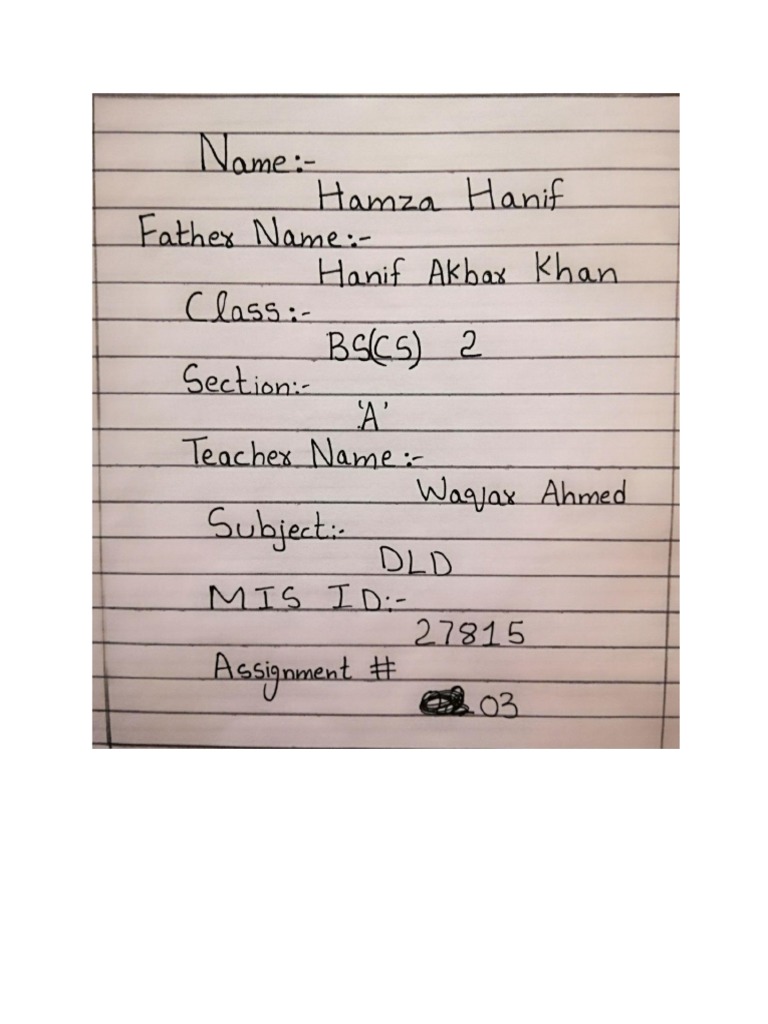 Name:-
Hamza Hanif
Father Name:-
Hanif Akbar Khan
Class:-
BS(CS) 2
Section:-
'A'
Teacher Name:-
Waqar Ahmed
Subject:-
DLD
MIS ID:-
27815
Assignment #
03